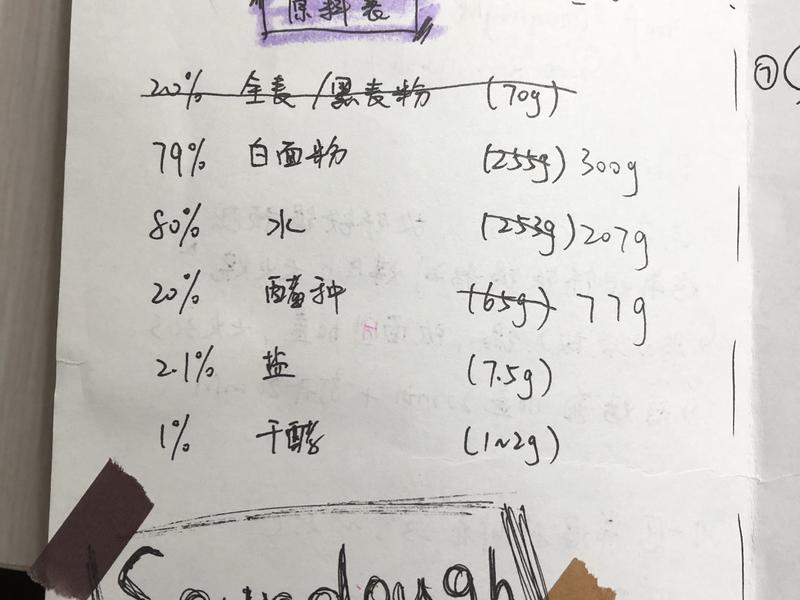 原料表
20% 全麦/黑麦粉 (70g)
79% 白面粉 (255g) 300g
80% 水 (253g) 207g
20% 酵种 (65g) 77g
2.1% 盐 (7.5g)
1% 干酵 (1~2g)
Sourdough
⑦